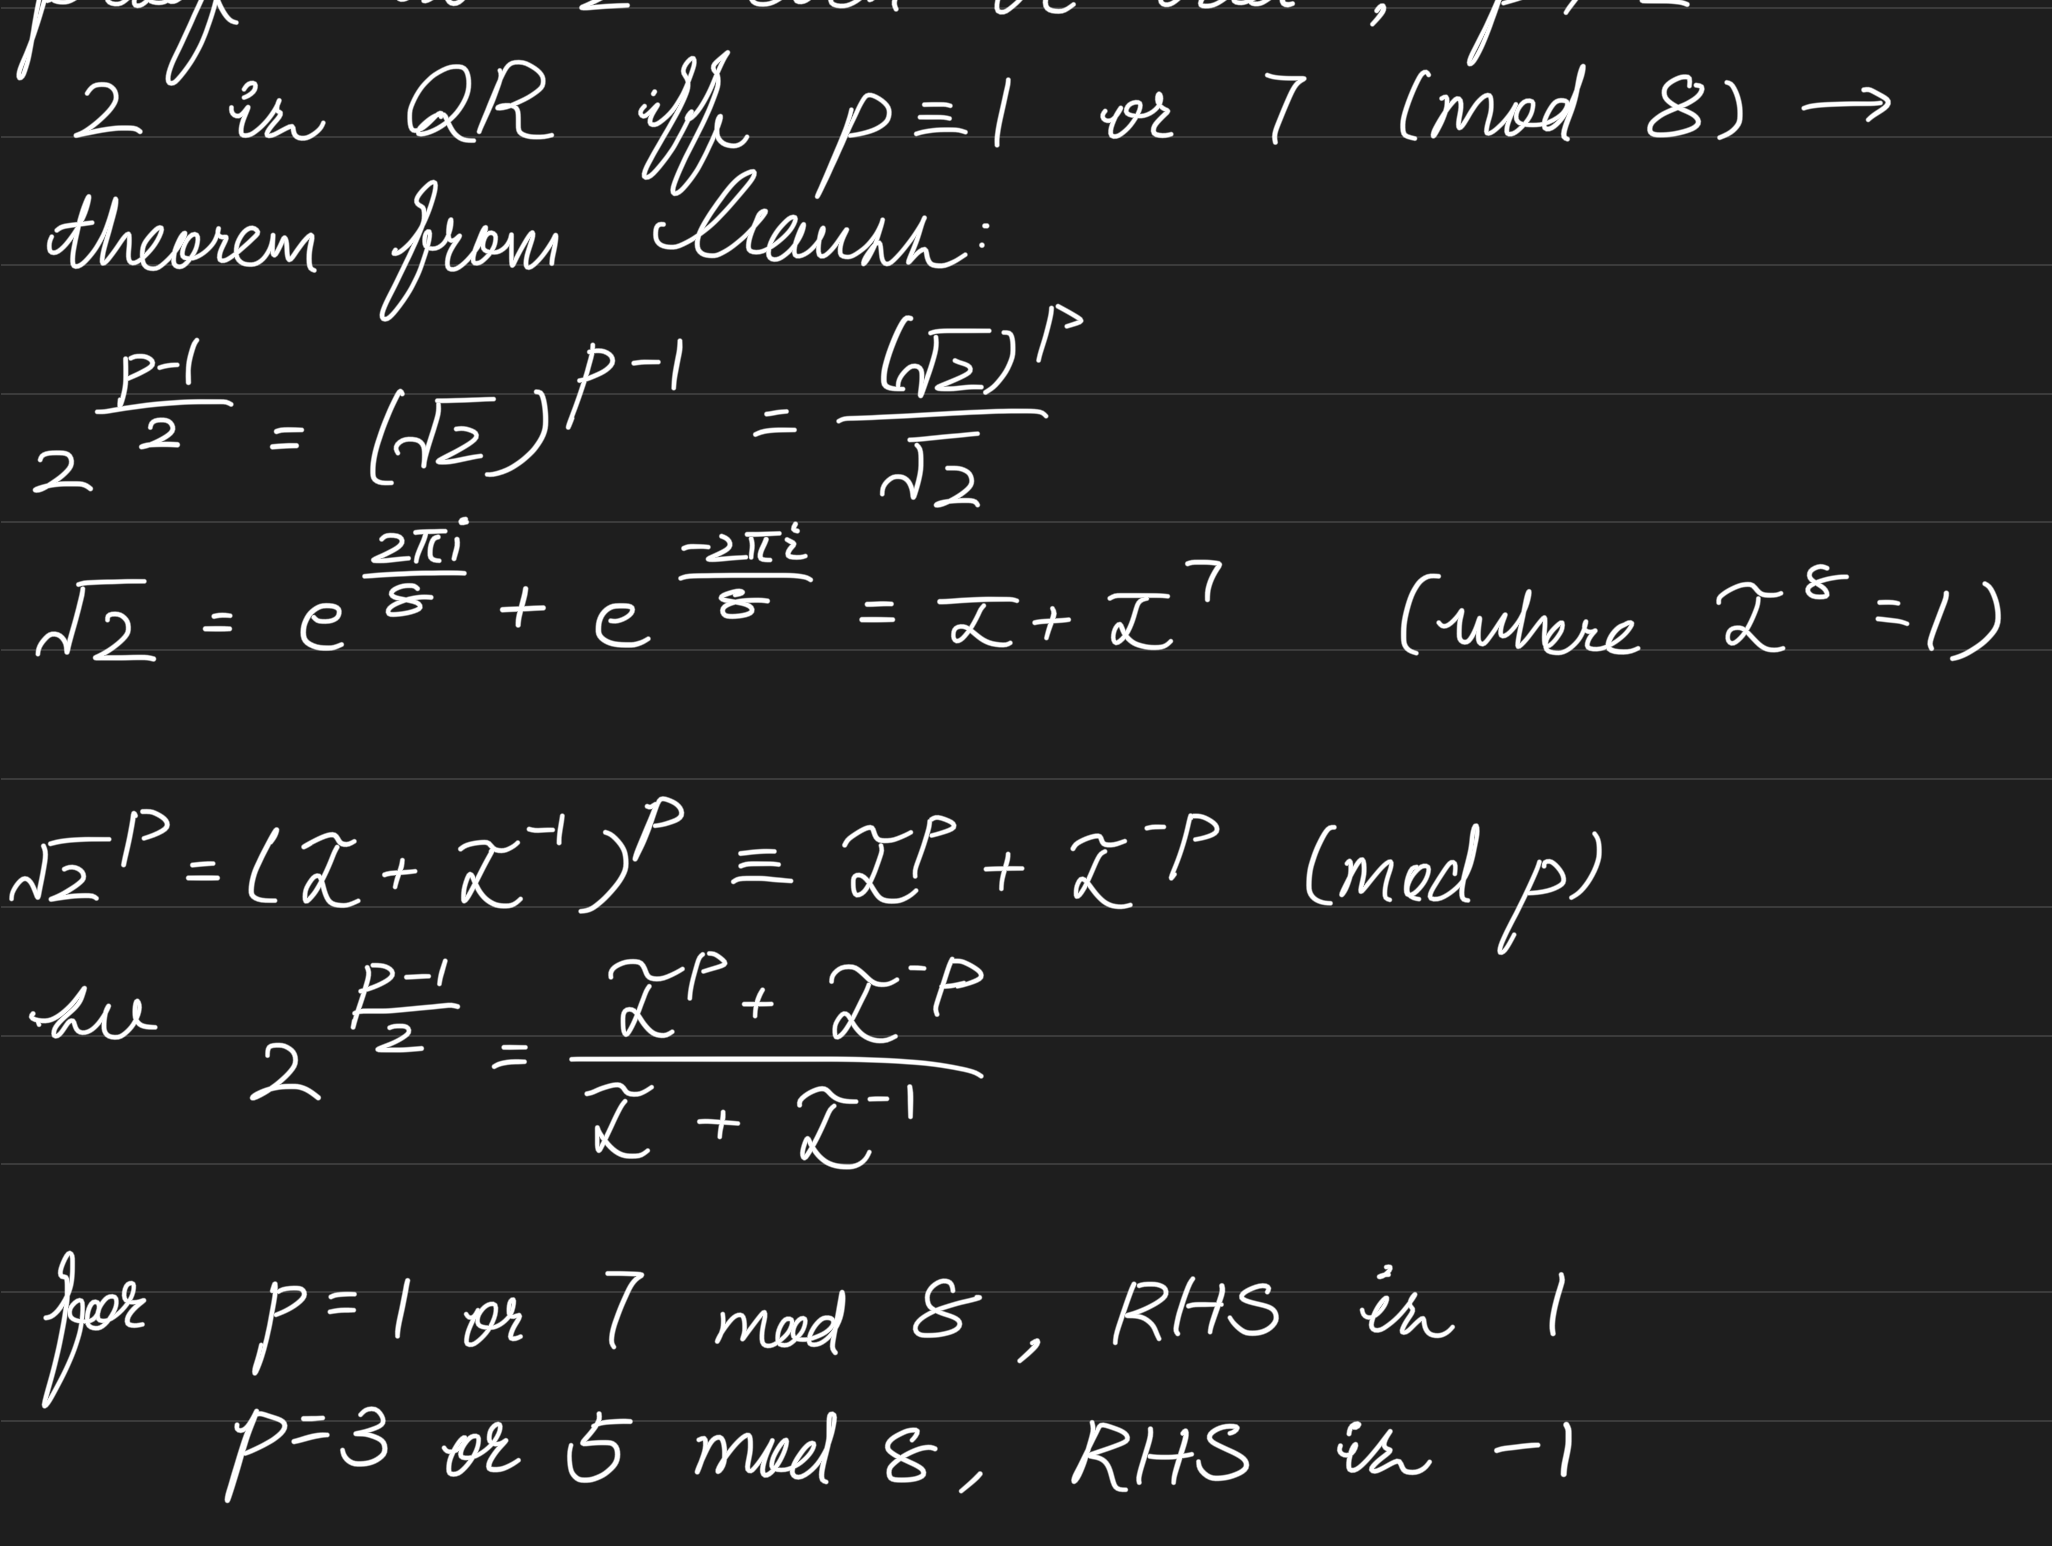 2 is QR iff p ≡ 1 or 7 (mod 8) →
theorem from Gauss:
2^((p-1)/2) = (√2)^(p-1) = (√2)^p / √2
√2 = e^(2πi/8) + e^(-2πi/8) = ζ + ζ^7 (where ζ^8 = 1)
√2^p = (ζ + ζ^-1)^p ≡ ζ^p + ζ^-p (mod p)
so 2^((p-1)/2) = (ζ^p + ζ^-p) / (ζ + ζ^-1)
for p = 1 or 7 mod 8, RHS is 1
p = 3 or 5 mod 8, RHS is -1